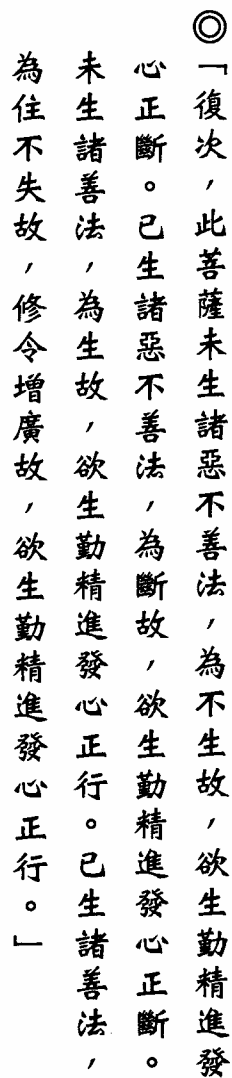 ◎「復次，此菩薩未生諸惡不善法，為不生故，欲生勤精進發
心正斷。已生諸惡不善法，為斷故，欲生勤精進發心正斷。
未生諸善法，為生故，欲生勤精進發心正行。已生諸善法，
為住不失故，修令增廣故，欲生勤精進發心正行。」